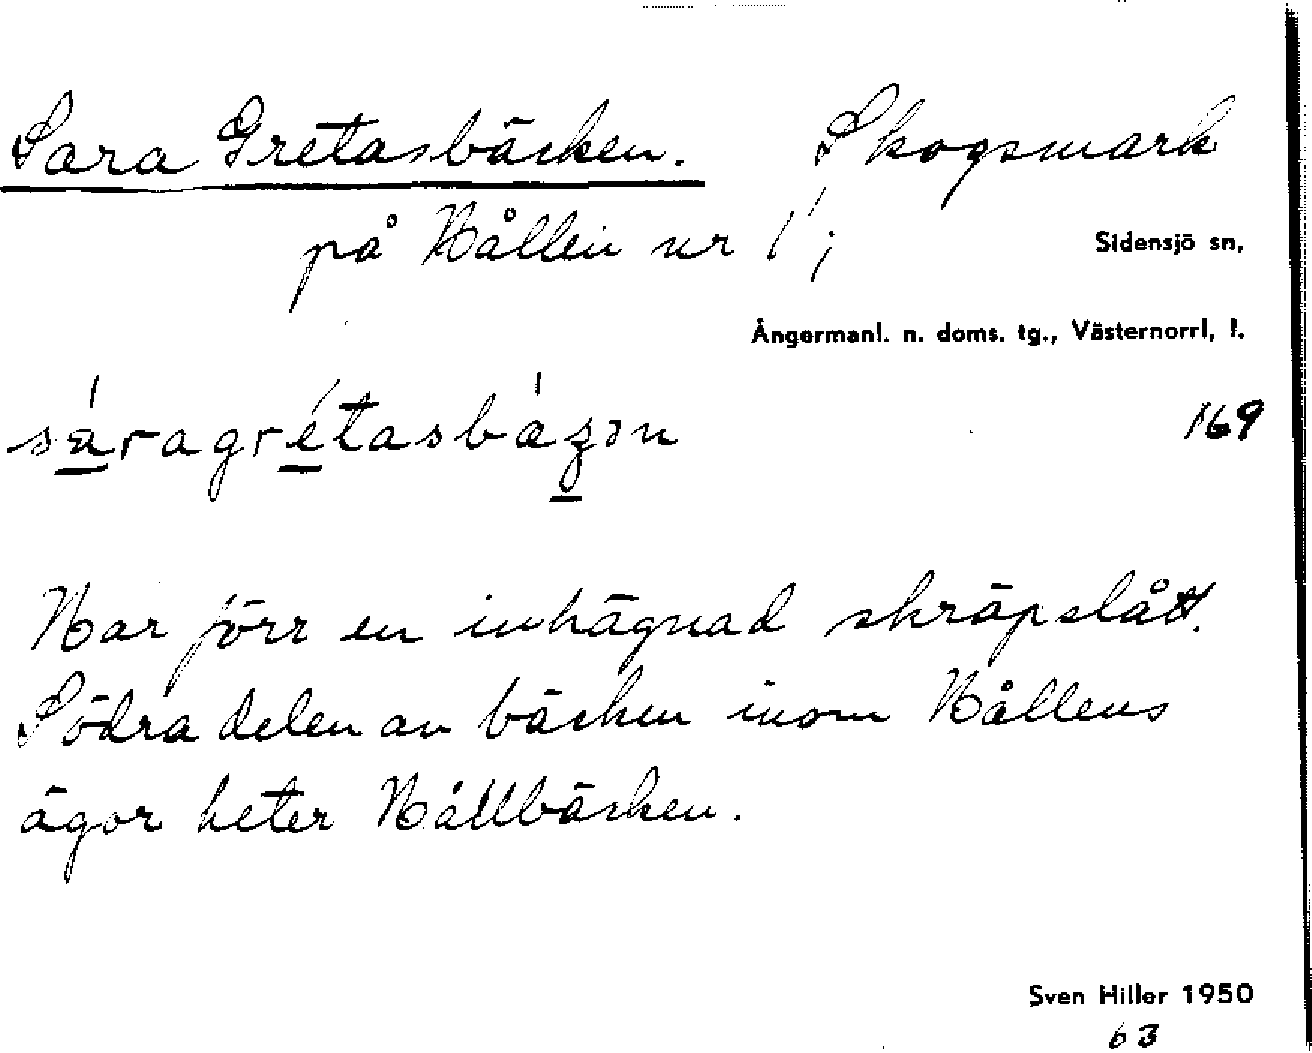 Sara Gretasbäcken. Skogsmark
på Vållen nr 1;
Sidensjö sn,
Ångermanl. n. doms. tg., Västernorrl, l.
169
Var förr en inhägnad skräpslått.
Södra delen av bäcken inom Vållens
ägor heter Vållbäcken.
Sven Hiller 1950
63